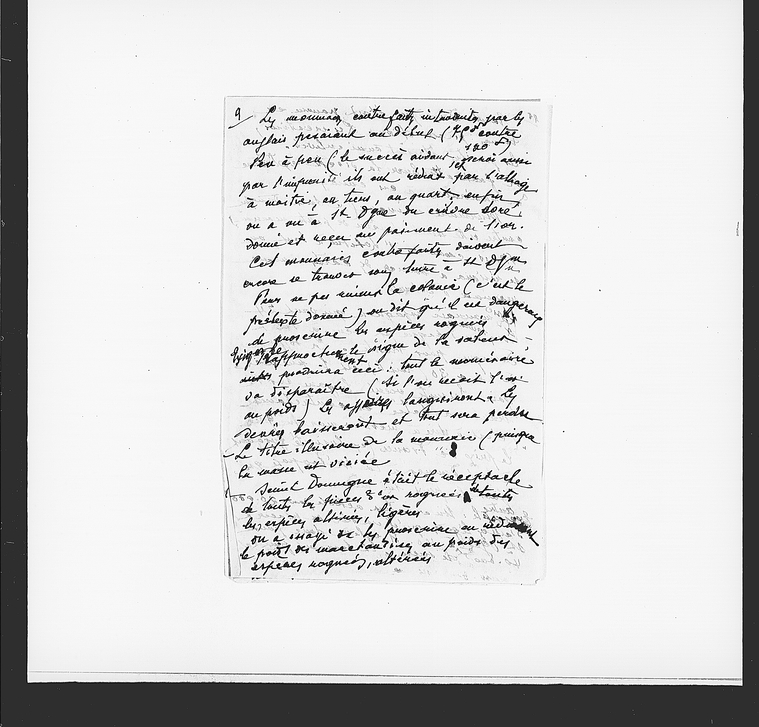 9 Les monnaies contrefaites introduites par les
anglais pesaient au début ( contre
Peu à peu ( le succès aidant et aussi
par l'impunité ils ont réduit par l'alliage
à moitié, au tiers, au quart, enfin
on a vu à St Dgue du cuivre doré
donné et reçu au paiement de l'or.
Ces monnaies contrefaites doivent
encore se trouver à St Dgue
Pour ne pas ruiner la colonie (c'est le
prétexte donné) on dit qu'il est dangereux
de proscrire les espèces rognées
le signe de la valeur
produira ceci : tout le numéraire
va disparaître (si l'on reçoit l'or
au poids) les affaires languiront. Les
denrées baisseront et tout sera perdu
Le titre illusoire de la monnaie (puisque
la masse est viciée
Saint Domingue était le réceptacle
de toutes les pièces d'or rognées de toutes
les espèces altérées, légères
on a essayé de les proscrire en réduisant
le poids des marchandises au poids des
espèces rognées, altérées